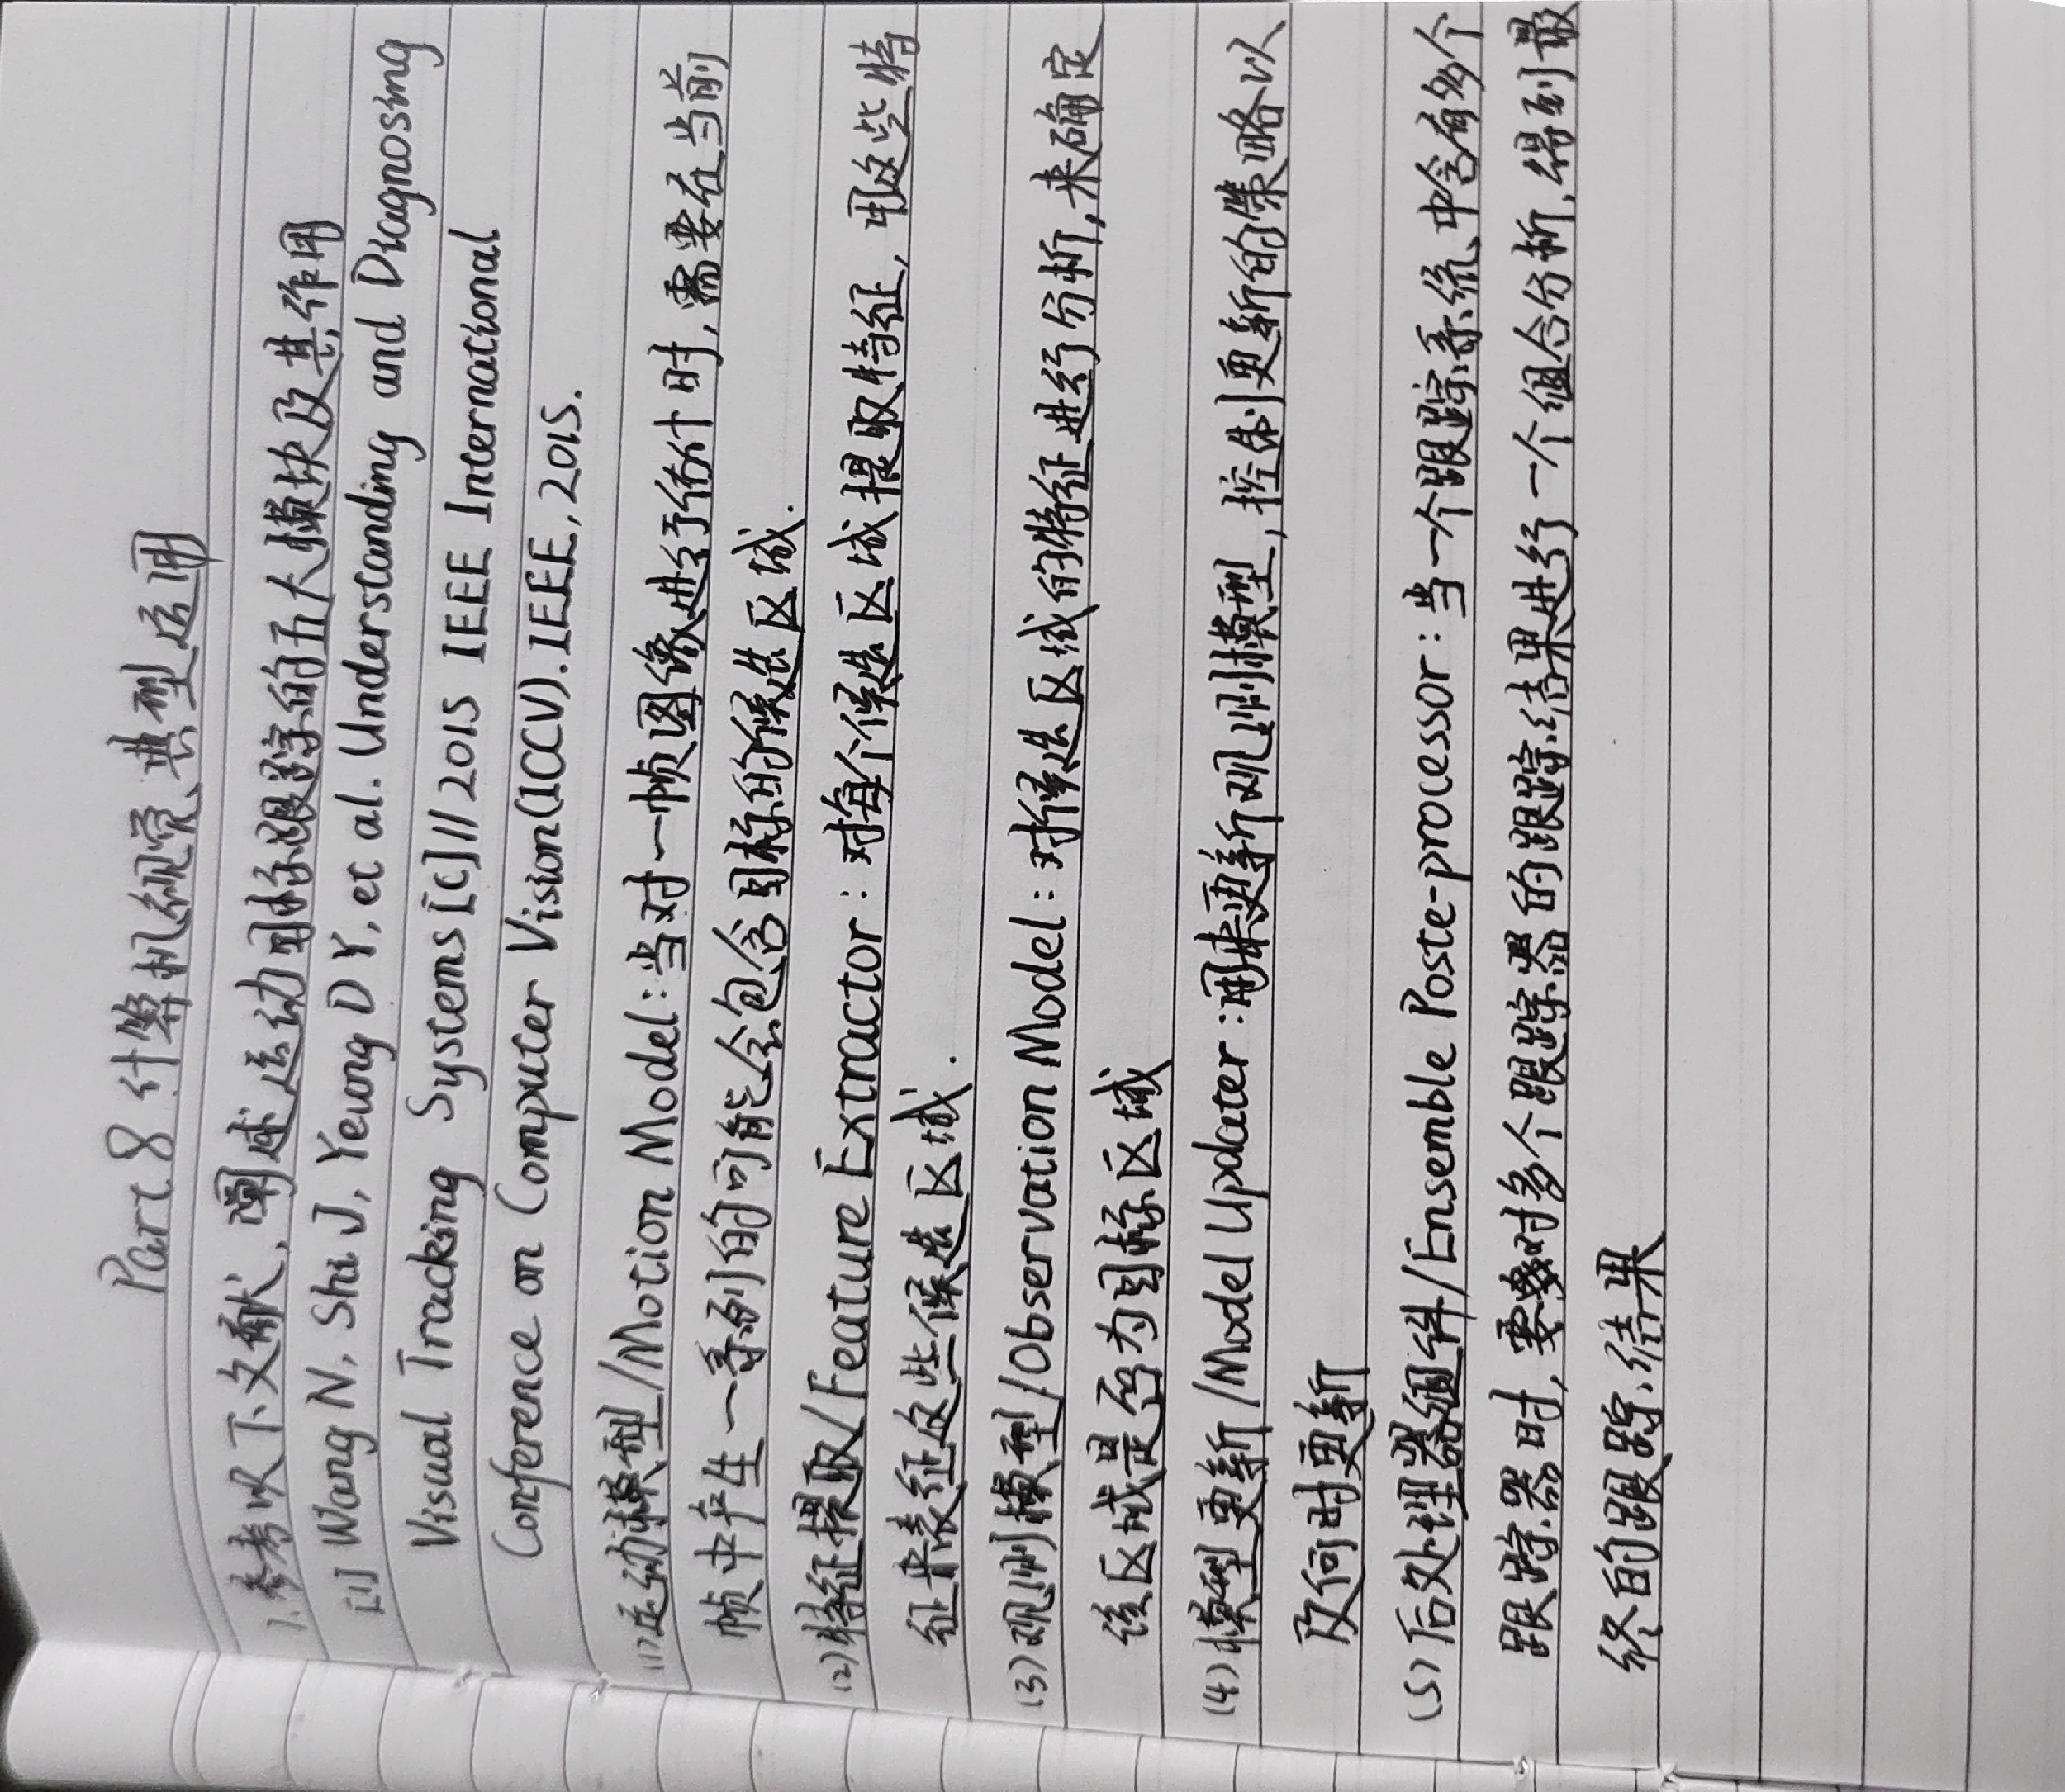 Part 8 计算机视觉典型运用
1.参考以下文献,阐述运动目标跟踪的五大模块及其作用
[1] Wang N, Shi J, Yeung D Y, et al. Understanding and Diagnosing
Visual Tracking Systems[C]//2015 IEEE International
Conference on Computer Vision(ICCV).IEEE,2015.
(1)运动模型/Motion Model:当对一帧图像进行估计时,需要在当前
帧中产生一系列的可能会包含目标的候选区域.
(2)特征提取/Feature Extractor:对每个候选区域提取特征,用这些特
征来表征这些候选区域.
(3)观测模型/Observation Model:对候选区域的特征进行分析,来确定
该区域是否为目标区域
(4)模型更新/Model Updater:用来更新观测模型,控制更新的策略以
及何时更新
(5)后处理器组件/Ensemble Poste-processor:当一个跟踪系统中含有多个
跟踪器时,要对多个跟踪器的跟踪结果进行一个组合分析,得到最
终的跟踪结果